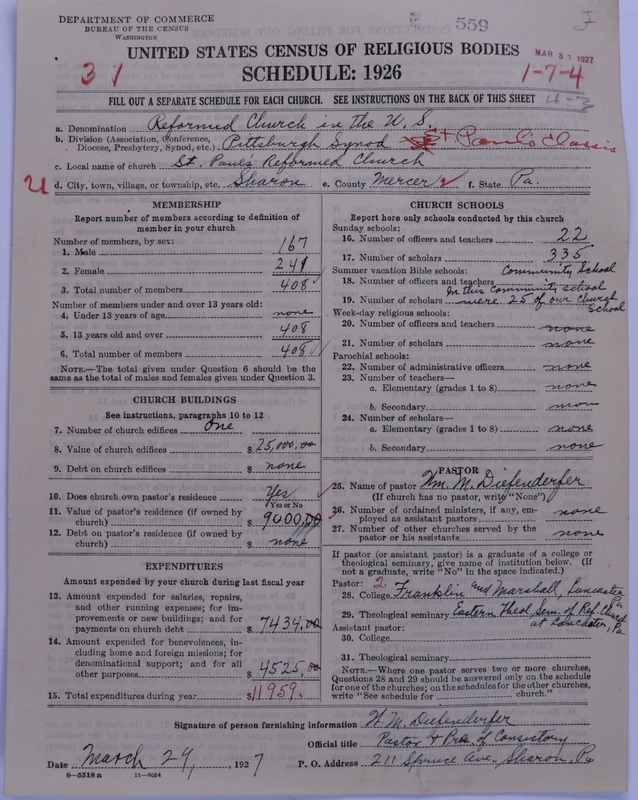 DEPARTMENT OF COMMERCE
BUREAU OF THE CENSUS
WASHINGTON
559
MAR 31 1927
UNITED STATES CENSUS OF RELIGIOUS BODIES
31
SCHEDULE: 1926
1-7-4
FILL OUT A SEPARATE SCHEDULE FOR EACH CHURCH. SEE INSTRUCTIONS ON THE BACK OF THIS SHEET
a. Denomination Reformed Church in the U.S.
b. Division (Association, Conference, Diocese, Presbytery, Synod, etc.) Pittsburgh Synod St Paul's Classis
c. Local name of church St. Paul's Reformed Church
d. City, town, village, or township, etc. Sharon e. County Mercer f. State Pa.
MEMBERSHIP
Report number of members according to definition of
member in your church
Number of members, by sex:
1. Male 167
2. Female 241
3. Total number of members 408
Number of members under and over 13 years old:
4. Under 13 years of age none
5. 13 years old and over 408
6. Total number of members 408
NOTE.—The total given under Question 6 should be
the same as the total of males and females given under Question 3.
CHURCH BUILDINGS
See instructions, paragraphs 10 to 12
7. Number of church edifices One
8. Value of church edifices $25,000.00
9. Debt on church edifices $ none
10. Does church own pastor's residence Yes
Yes or No
11. Value of pastor's residence (if owned by
church) $ 9000.00
12. Debt on pastor's residence (if owned by
church) $ none
EXPENDITURES
Amount expended by your church during last fiscal year
13. Amount expended for salaries, repairs,
and other running expenses; for im-
provements or new buildings; and for
payments on church debt $ 7434.00
14. Amount expended for benevolences, in-
cluding home and foreign missions; for
denominational support; and for all
other purposes $ 4525.00
15. Total expenditures during year $ 11959.
CHURCH SCHOOLS
Report here only schools conducted by this church
Sunday schools:
16. Number of officers and teachers 22
17. Number of scholars 335
Summer vacation Bible schools: Community School
18. Number of officers and teachers In this Community school
19. Number of scholars were 25 of our Church School
Week-day religious schools:
20. Number of officers and teachers none
21. Number of scholars none
Parochial schools:
22. Number of administrative officers none
23. Number of teachers—
a. Elementary (grades 1 to 8) none
b. Secondary none
24. Number of scholars—
a. Elementary (grades 1 to 8) none
b. Secondary none
PASTOR
25. Name of pastor Wm. M. Diefenderfer
(If church has no pastor, write "None")
26. Number of ordained ministers, if any, em-
ployed as assistant pastors none
27. Number of other churches served by the
pastor or his assistants none
If pastor (or assistant pastor) is a graduate of a college or
theological seminary, give name of institution below. (If
not a graduate, write "No" in the space indicated.)
Pastor: 2
28. College Franklin and Marshall, Lancaster Pa
29. Theological seminary Eastern Theol. Sem. of Ref. Church
at Lancaster, Pa.
Assistant pastor:
30. College
31. Theological seminary
NOTE.—Where one pastor serves two or more churches,
Questions 28 and 29 should be answered only on the schedule
for one of the churches; on the schedules for the other churches,
write "See schedule for church."
Signature of person furnishing information W. M. Diefenderfer
Official title Pastor & Pres. of Consistory
Date March 29, 1927 P. O. Address 211 Spruce Ave. Sharon, Pa
8—5518 a 11—9054